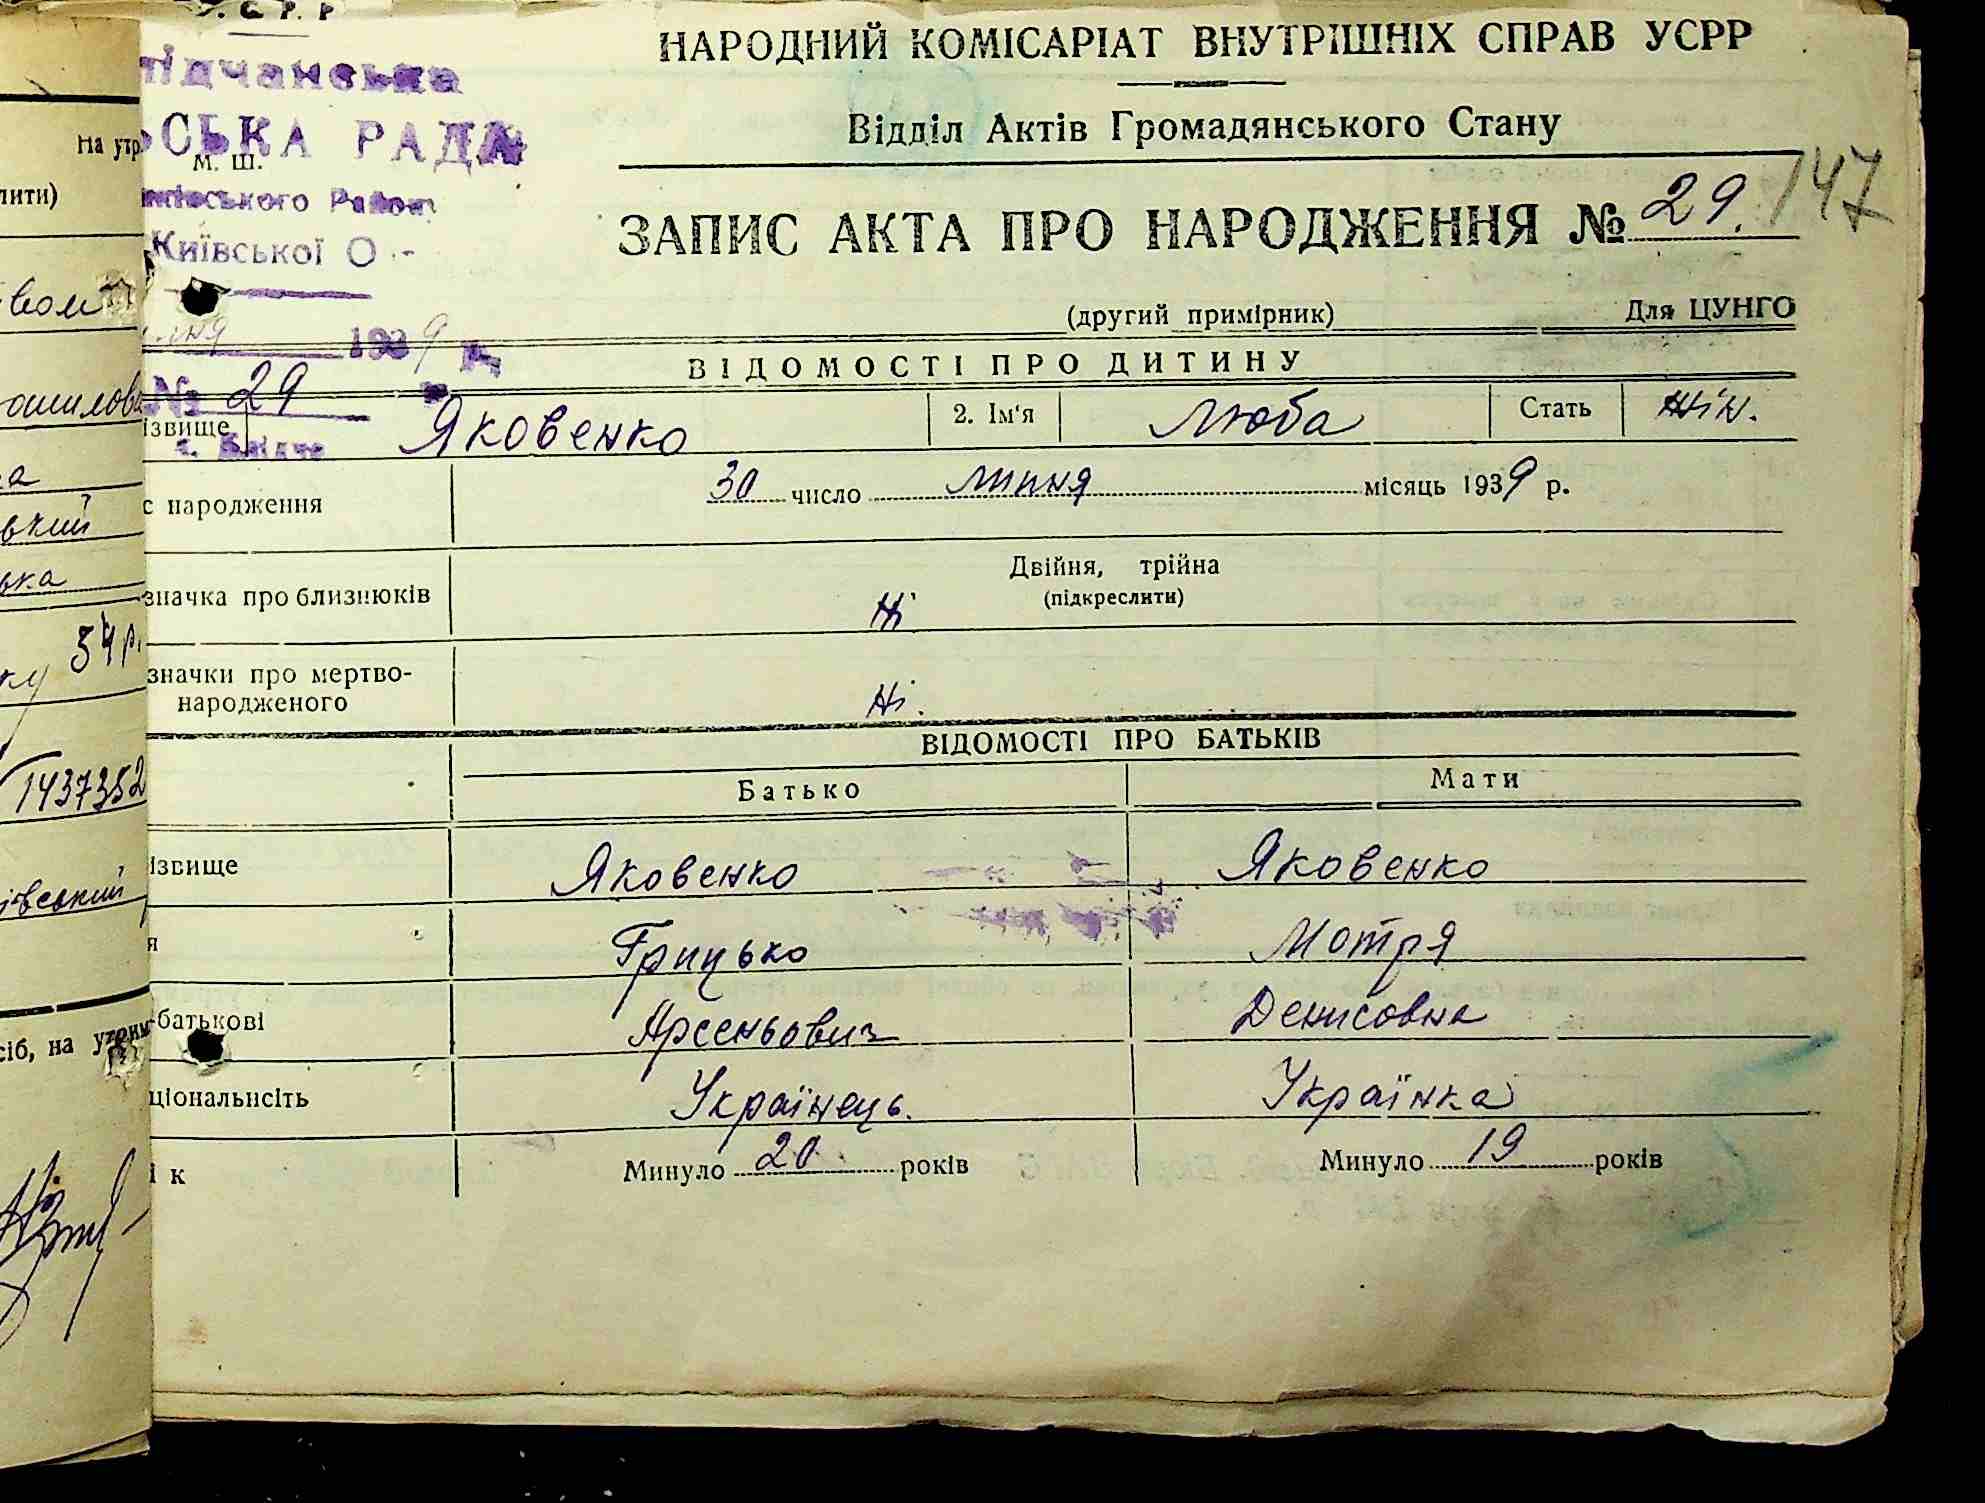 У. С. Р. Р
підчанська
СЬКА РАДА
м. Ш.
Київської О
1939
№ 29
НАРОДНИЙ КОМІСАРІАТ ВНУТРІШНІХ СПРАВ УСРР
Відділ Актів Громадянського Стану
147
ЗАПИС АКТА ПРО НАРОДЖЕННЯ № 29.
(другий примірник) Для ЦУНГО
ВІДОМОСТІ ПРО ДИТИНУ
ізвище Яковенко 2. Ім'я Люба Стать жін.
с народження 30 число липня місяць 1939 р.
Двійня, трійна
значка про близнюків Ні (підкреслити)
значки про мертво-
народженого Ні.
ВІДОМОСТІ ПРО БАТЬКІВ
Батько Мати
ізвище Яковенко Яковенко
я Грицько Мотря
батькові Арсеньович Денисовна
ціональнсіть Українець. Українка
і к Минуло 20 років Минуло 19 років
На утр
лити)
вом
ошилова
ка
вкий
ька
54 р.
1437352
івський
сіб, на утрим